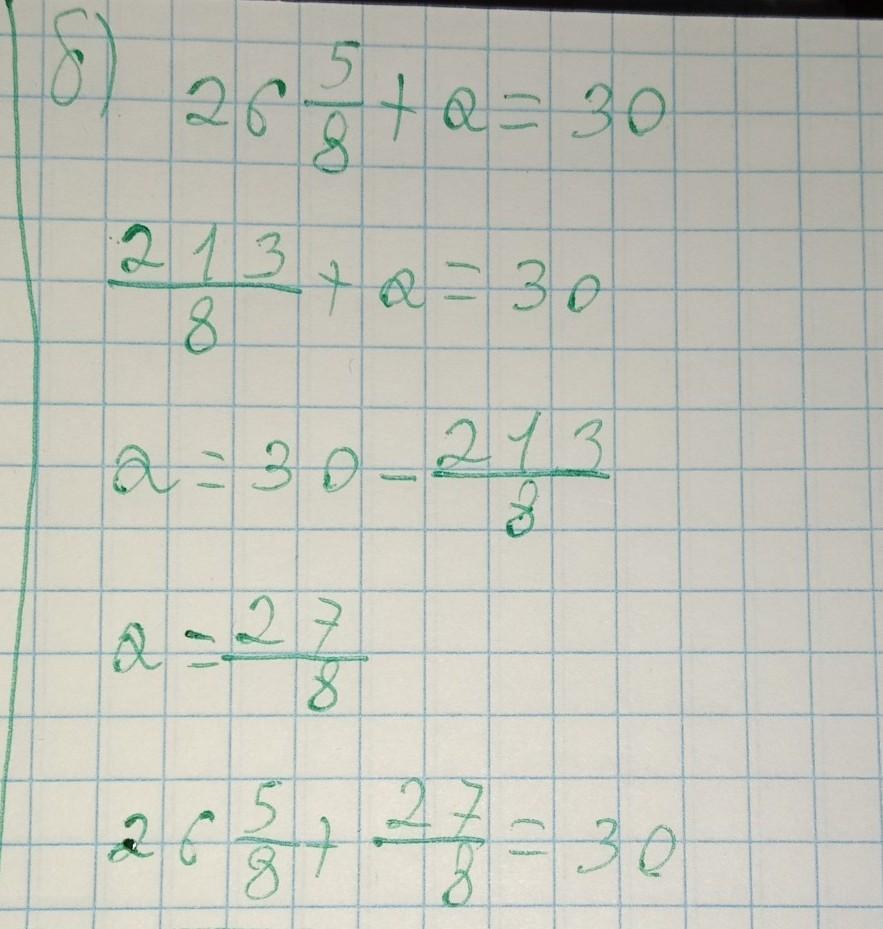 б) 26 5/8 + a = 30
213/8 + a = 30
a = 30 - 213/8
a = 27/8
26 5/8 + 27/8 = 30